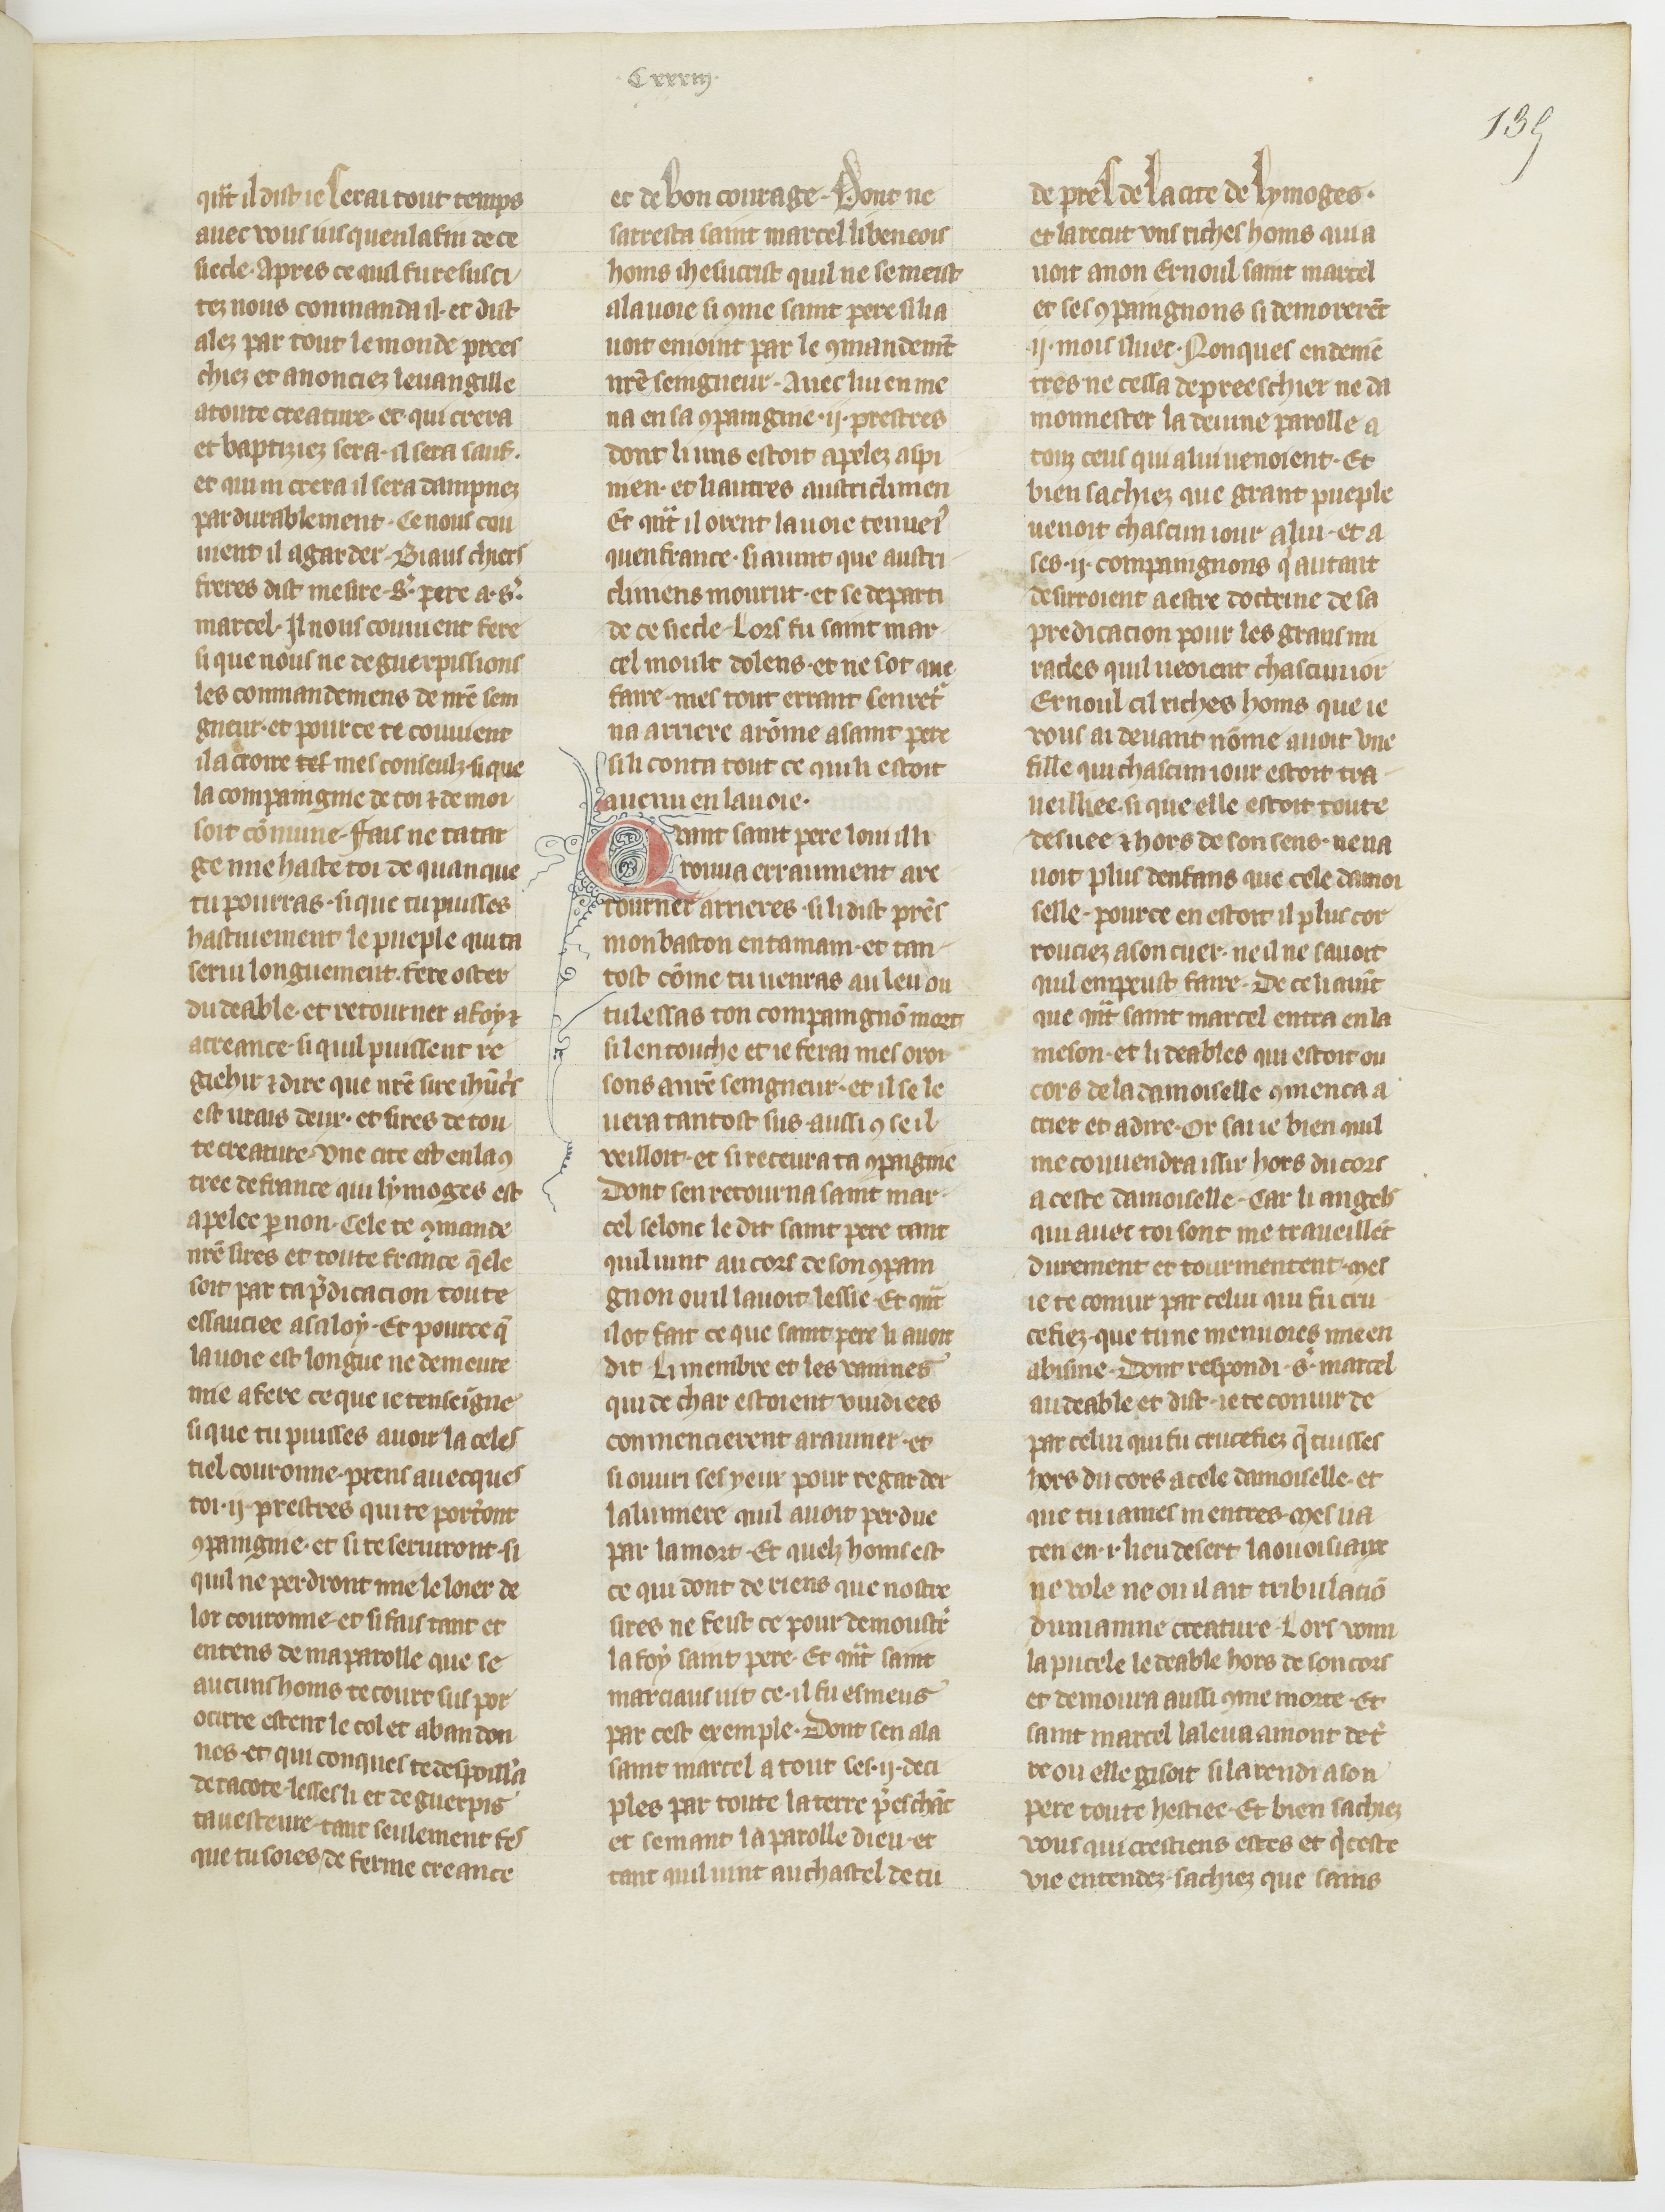 Cxxxiij.
135
q̃nt il dist ie serai tout temps
auec vous iusquen la fin de ce
siecle. Apres ce quil fu resusci
tez nous conmanda il. et dist
alez par tout le monde prees
chiez et anonciez leuangille
a toute creature. et qui crera
et baptiziez sera. il sera saus.
et qui ni crera il sera dampnez
pardurablement. Ce nous cou
uient il a garder. Biaus chiers
freres dist mesire. s. pere a. s.
marcel. Il nous couuient fere
si que nous ne deguerpissions
les conmandemens de nr̃e sein
gneur. et pour ce te couuient
il a croire tes mes conseulz. si que
la compaingnie de toi ⁊ de moi
soit cõmune. Fais ne ta tar
ge mie haste toi de quanque
tu pourras. si que tu puisses
hastiuement le pueple qui ta
serui longuement. fere oster
du deable. et retourner a foy ⁊
a creance. si quil puissent re
gehir ⁊ dire que nr̃e sire ihũcs
est urais deux. et sires de tou
te creature. Vne cite est en la ꝯ
tree de france qui lymoges est
apelee ꝑ non. Cele te ꝯmande
nr̃e sires et toute france q̃ ele
soit par ta p̃dicacion toute
essauciee a sa loy. Et pource q̃
la uoie est longue ne demeure
mie a fere ce que ie tenseigne
si que tu puisses auoir la celes
tiel couronne. prens auecques
toi. ij. prestres qui te port̾ont
ꝯpaingnie. et si te seruiront. si
quil ne perdront mie le loier de
lor couronne. et si fais tant et
entens de ma parolle que se
aucuns homs te court sus por
ocirre estent le col et abandon
nes. et qui conques te despoill̾a
de ta cote. lesses li et deguerpis
ta uesteure. tant seulement fes
que tu soies de ferme creance
et de bon courage. Dont ne
sarresta saint marcel li beneois
homs ihesucrist quil ne se meist
a la uoie si ꝯme saint pere si li a
uoit enioint par le ꝯmandemẽt
nr̃e seingneur. Auec lui en me
na en sa ꝯpaingnie. ij. prestres
dont li uns estoit apelez alpi
nien. et li autres austriclinien
Et q̃nt il orent la uoie tenue i
quen france. si auint que austri
cliniens mourut. et se departi
de ce siecle. Lors fu saint mar
cel moult dolens. et ne sot que
faire. mes tout errant sen ret̾
na arriere a rõme a saint pere
si li conta tout ce qui li estoit
auenu en la uoie.
Quant saint pere loui il li
rouua erraument a re
tourner arrieres. si li dist prẽs
mon baston en ta main. et tan
tost cõme tu uenras au leu ou
tu lessas ton compaingnõ mort
si len touche et ie ferai mes oroi
sons a nr̃e seingneur. et il se le
uera tantost sus. aussi ꝯ se il
veilloit. et si receura ta ꝯpaignie
Dont sen retourna saint mar
cel selonc le dit saint pere tant
quil uint au cors de son ꝯpain
gnon ou il lauoit lessie. Et q̃nt
il ot fait ce que saint pere li auoit
dit. Li membre et les vainnes
qui de char estoient vuidiees
conmencierent a rauiuer. et
si ouuri ses yeux pour regarder
la lumiere quil auoit perdue
par la mort. Et quelz homs est
ce qui dont de riens que nostre
sires ne feist ce pour demoustr̾
la foy saint pere. Et q̃nt saint
marciaus uit ce. il fu esmeus
par cest exemple. Dont sen ala
saint marcel a tout ses. ij. deci
ples par toute la terre p̃eschãt
et semant la parolle dieu. et
tant quil uint au chastel de tu
de pres de la cite de lymoges.
et la recut vns riches homs qui a
uoit a non Ernoul saint marcel
et ses ꝯpaingnons si demorerẽt
ij. mois iluec. Nonques endemẽ
tres ne cessa de preeschier ne da
monnester la deuine parolle a
touz ceus qui a lui uenoient. Et
bien sachiez que grant pueple
uenoit chascun iour a lui. et a
ses. ij. compaingnons q̾ autant
desirroient a estre doctrine de sa
predicacion pour les grans mi
racles quil ueoient chascun ior
Ernoul cil riches homs que ie
vous ai deuant nõme auoit vne
fille qui chascun iour estoit tra
ueilliee. si que elle estoit toute
desuee ⁊ hors de son sens. ne na
uoit plus denfans que cele damoi
selle. pource en estoit il plus cor
rouciez a son cuer. ne il ne sauoit
quil en peust faire. De ce li auĩt
que q̃nt saint marcel entra en la
meson. et li deables qui estoit ou
cors de la damoiselle ꝯmenca a
crier et a dire. Or sai ie bien quil
me conuendra issir hors du cors
a ceste damoiselle. Car li angels
qui auec toi sont me traueillẽt
durement et tourmentent. mes
ie te coniur par celui qui fu cru
cefiez. que tu ne menuoies mie en
abisme. Dont respondi. s. marcel
au deable et dist. ie te coniur de
par celui qui fu crucefiez q̃ tu isses
hors du cors a cele damoiselle. et
que tu iames ni entres. mes ua
ten en. i. lieu desert la ou oisiaux
ne vole ne ou il ait tribulaciõ
dumainne creature. Lors vomi
la pucele le deable hors de son cors
et demoura aussi ꝯme morte. Et
saint marcel la leua amont de t̾
re ou elle gisoit si la rendi a son
pere toute hestiee. Et bien sachiez
vous qui crestiens estes et q̾ ceste
vie entendez. sachiez que sains